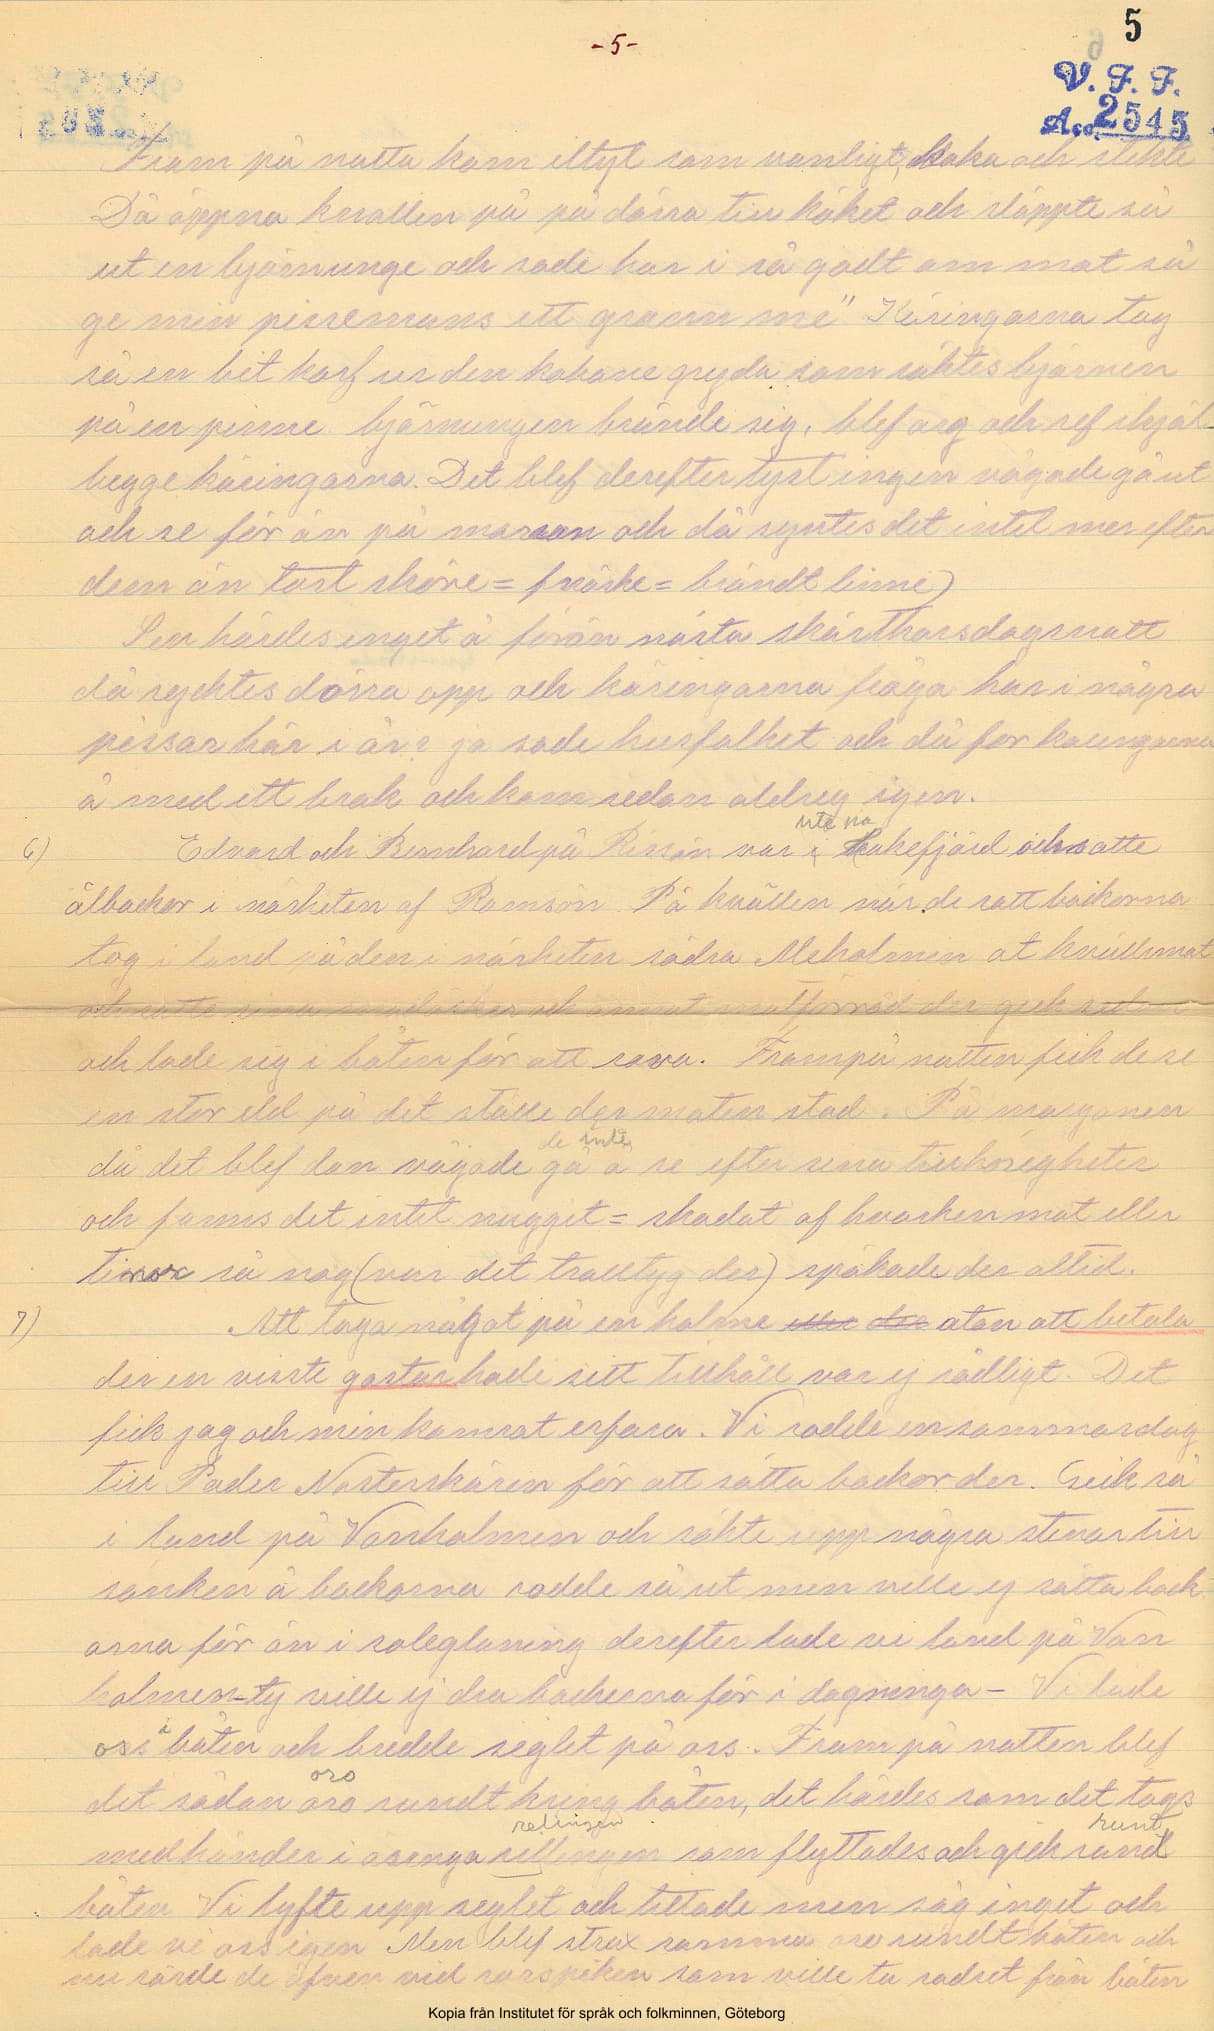 -5-
5
V. F. F.
Acc. 2545
Fram på natta kom iltyt som vanligt, koka och stekte
Då öppna knallen på på dörra till köket och släppte så
ut en björnunge och sade har i så godt om mat så
ge min pissemans ett grann me" Käringarna tog
så en bit korf ur den kokane gryda som räktes björnen
på en pinne björnungen brände sig, blef arg och ref ihjäl
begge käringarna. Det blef derefter tyst ingen vågade gå ut
och se för än på morron och då syntes det intet mer efter
dem än tort sköre = fnöske = brändt linne)
Sen hördes inget å förän nästa skärthorsdagsnatt
då rycktes dörra opp och käringarna fråga har i några
pissar här i år? ja sade husfolket och då for käringarna
å med ett brak och kom sedan aldrig igen.
ute på
6) Edvard och Bernhard på Rissön var i Hakefjärd och satte
ålbackor i närheten af Ramsön På kvällen när de satt backorna
tog i land på den i närheten södra Aleholmen åt kvällsmat
och satte sina matförråd der gick
och lade sig i båten för att sova. Frampå natten fick de se
en stor eld på det ställe der maten stod. På morgonen
de inte
då det blef dan vågade gå å se efter sina tillhörigheter
och fanns det intet nugget = skadat af hvarken mat eller
tinor så nog (var det trolltyg der) spökade der altid.
7) Att taga något på en holme eller der utan att betala
der en visste gastar hade sitt tillhåll var ej rådligt. Det
fick jag och min kamrat erfara. Vi rodde en sommardag
till Pader Nosterskären för att sätta backor der. Gick så
i land på Vannholmen och sökte upp några stenar till
sänken å backorna rodde så ut men ville ej sätta back
orna för än i soleglaning derefter lade vi land på Van
holmen - ty ville ej dra backorna för i dagninga - Vi lade
i
oss båten och bredde seglet på oss. Fram på natten blef
oro
det sådan oro rundt kring båten, det hördes som det togs
relingen runt
med händer i åsenga rellingen som flyttades och gick rund
båten Vi lyfte upp seglet och tittade men såg inget och
lade vi oss igen Men blef strax samma oro rundt båten och
nu rörde de äfven vid rorspiken som ville ta rodret från båten
Kopia från Institutet för språk och folkminnen, Göteborg